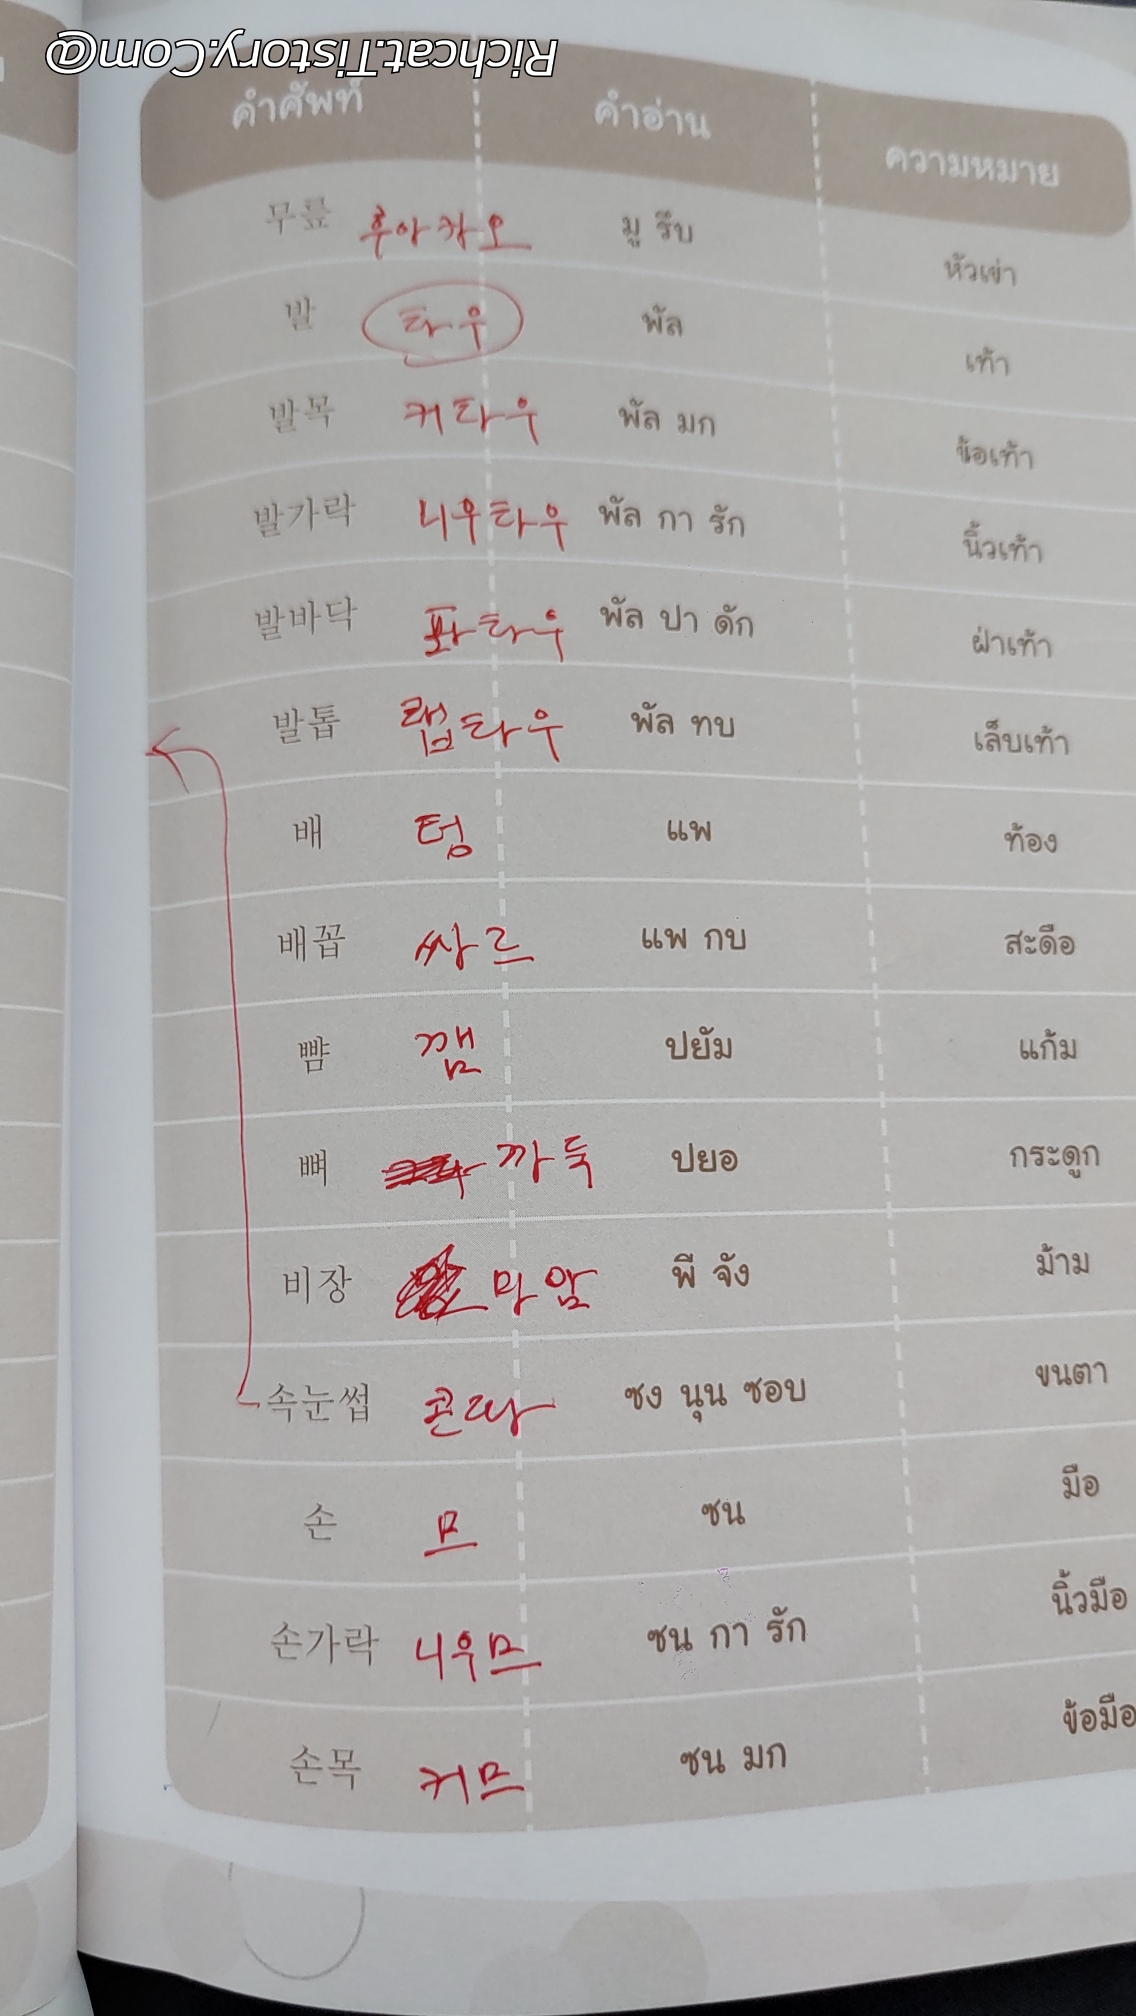 Richcat.Tistory.Com@
คำศัพท์ คำอ่าน ความหมาย
무릎 후아카오 มู รึบ หัวเข่า
발 타우 พัล เท้า
발목 커타우 พัล มก ข้อเท้า
발가락 니우타우 พัล กา รัก นิ้วเท้า
발바닥 퐈타우 พัล ปา ดัก ฝ่าเท้า
발톱 렙타우 พัล ทบ เล็บเท้า
배 텅 แพ ท้อง
배꼽 แพ กบ สะดือ
뺨 깸 ปยัม แก้ม
뼈 까둑 ปยอ กระดูก
비장 마암 พี จัง ม้าม
속눈썹 콘따 ซง นุน ซอบ ขนตา
손 므 ซน มือ
손가락 니우므 ซน กา รัก นิ้วมือ
손목 커므 ซน มก ข้อมือ